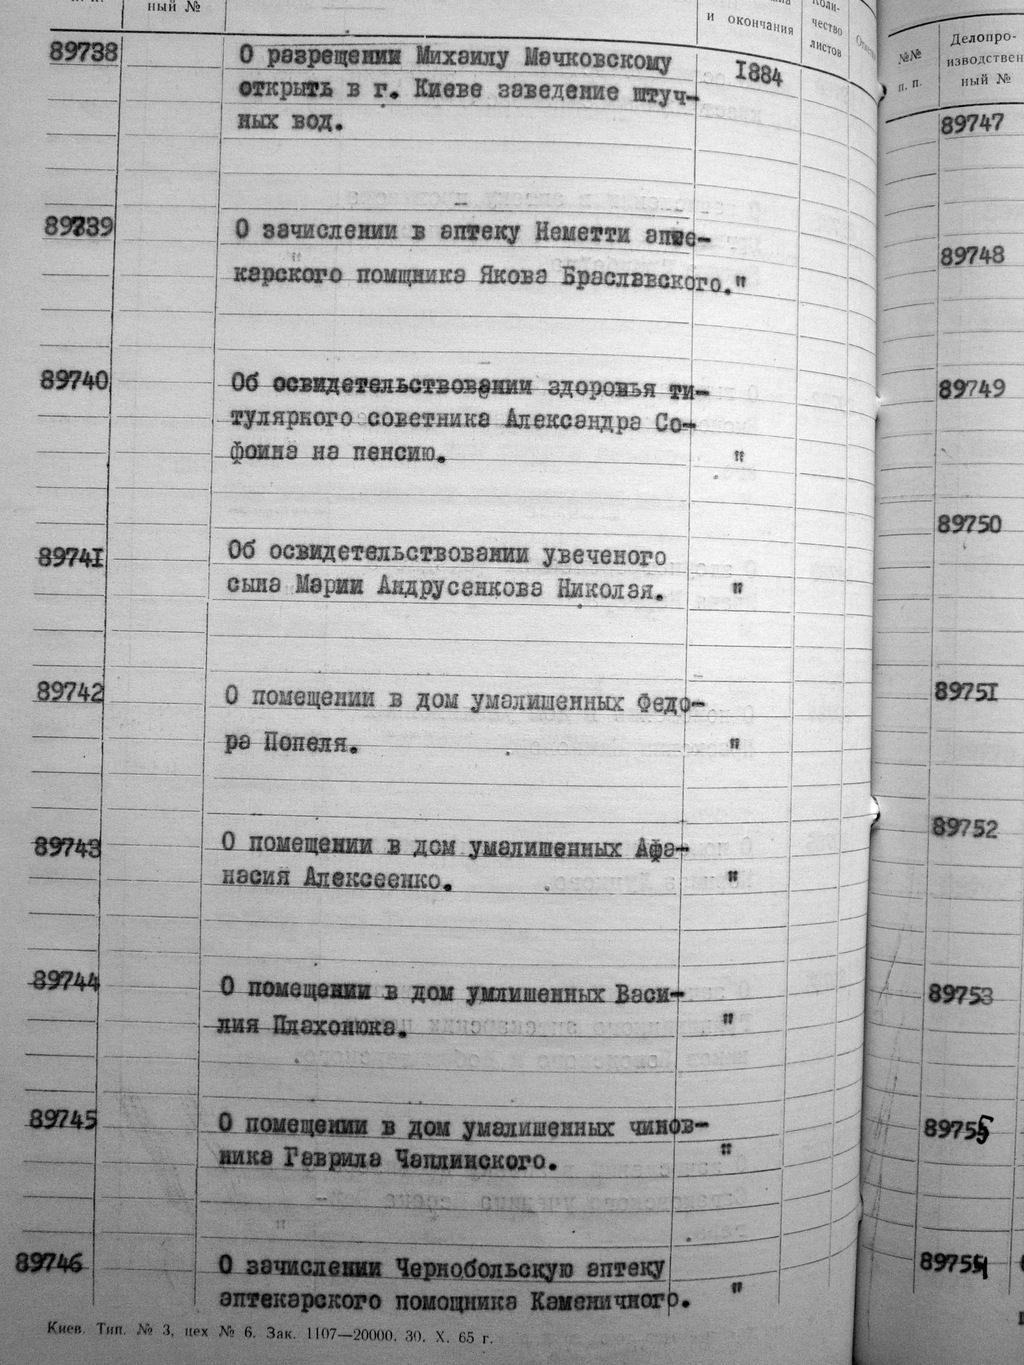 ный №
и окончания
чество
листов
89738
О разрещении Михаилу Мачковскому
1884
открыть в г. Киеве заведение штуч-
ных вод.
89739
О зачислении в аптеку Неметти апте-
"
карского помщника Якова Браславского."
89740
Об освидетельствовании здоровья ти-
тулярного советника Александра Со-
фоина на пенсию. "
89741
Об освидетельствовании увеченого
сына Марии Андрусенкова Николая. "
89742
О помещении в дом умалишенных Федо-
ра Попеля. "
89743
О помещении в дом умалишенных Афа-
насия Алексеенко. "
89744
О помещении в дом умлишенных Васи-
лия Плахонюка. "
89745
О помещении в дом умалишенных чинов-
ника Гаврила Чаплинского. "
89746
О зачислении Чернобольскую аптеку
аптекарского помощника Каменичного. "
Киев. Тип. № 3, цех № 6. Зак. 1107—20000. 30. X. 65 г.
№№
п. п.
Делопро-
изводствен
ный №
89747
89748
89749
89750
89751
89752
89753
89755
89754